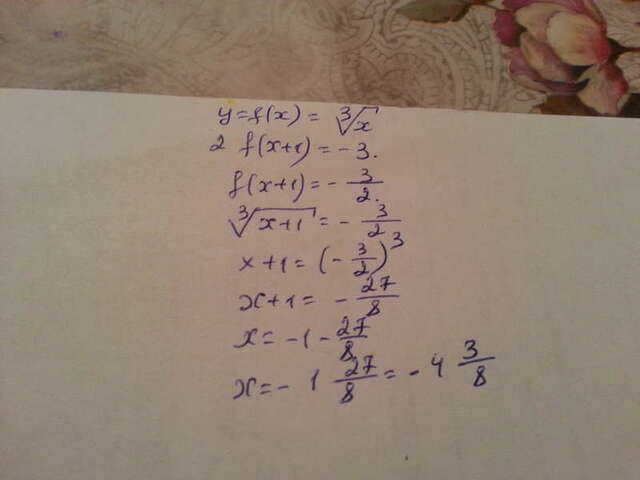 y=f(x) = ∛x
2 f(x+1) = -3.
f(x+1) = - 3/2.
∛(x+1) = - 3/2
x+1 = (- 3/2)³
x+1 = - 27/8
x = -1 - 27/8
x = - 1 27/8 = - 4 3/8